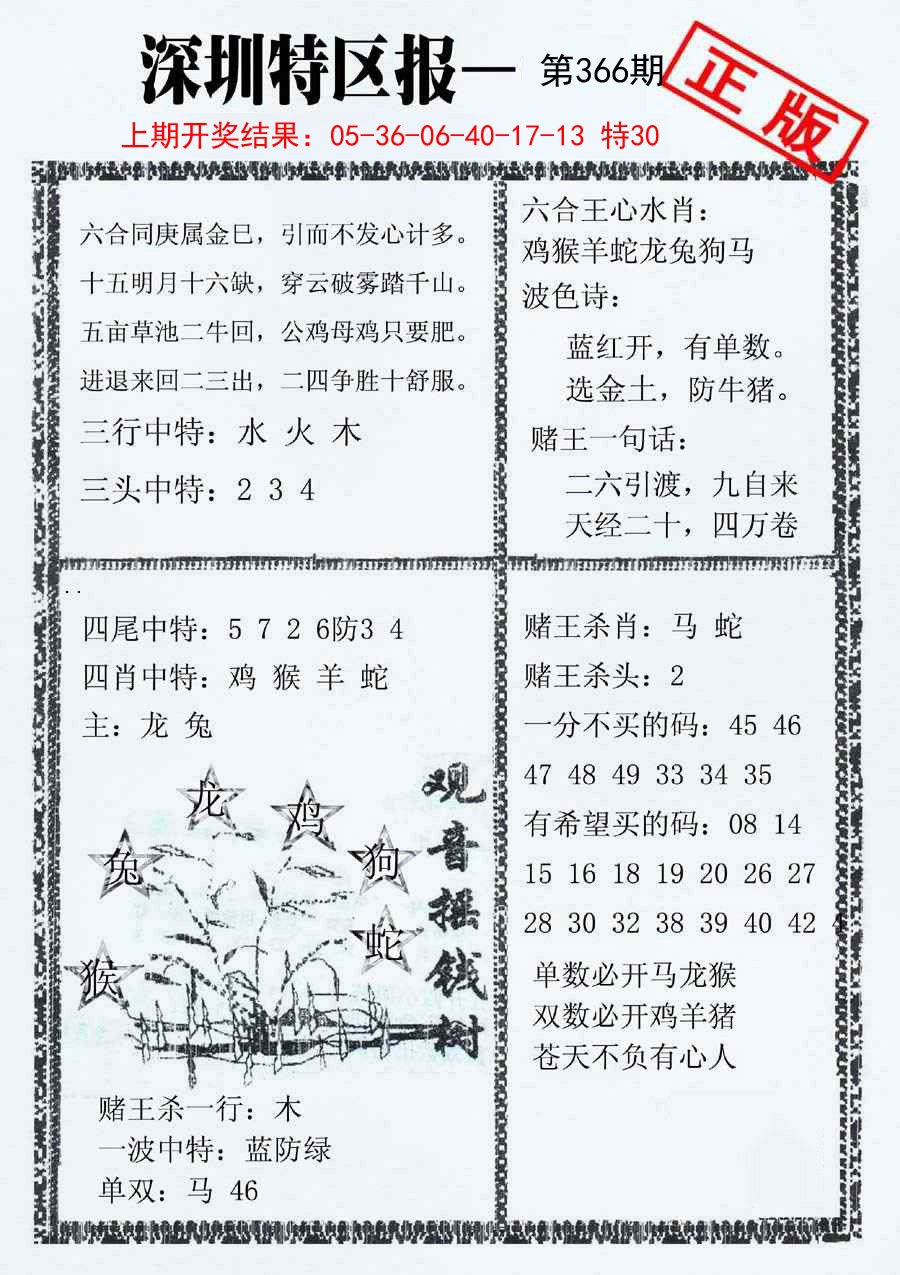 深圳特区报一 第366期
正版
上期开奖结果：05-36-06-40-17-13 特30
六合同庚属金巳，引而不发心计多。
十五明月十六缺，穿云破雾踏千山。
五亩草池二牛回，公鸡母鸡只要肥。
进退来回二三出，二四争胜十舒服。
三行中特：水 火 木
三头中特：2 3 4
六合王心水肖：
鸡猴羊蛇龙兔狗马
波色诗：
蓝红开，有单数。
选金土，防牛猪。
赌王一句话：
二六引渡，九自来
天经二十，四万卷
四尾中特：5 7 2 6防3 4
四肖中特：鸡 猴 羊 蛇
主：龙 兔
龙
鸡
兔
狗
蛇
猴
观音摇钱树
赌王杀一行：木
一波中特：蓝防绿
单双：马 46
赌王杀肖：马 蛇
赌王杀头：2
一分不买的码：45 46
47 48 49 33 34 35
有希望买的码：08 14
15 16 18 19 20 26 27
28 30 32 38 39 40 42 4
单数必开马龙猴
双数必开鸡羊猪
苍天不负有心人